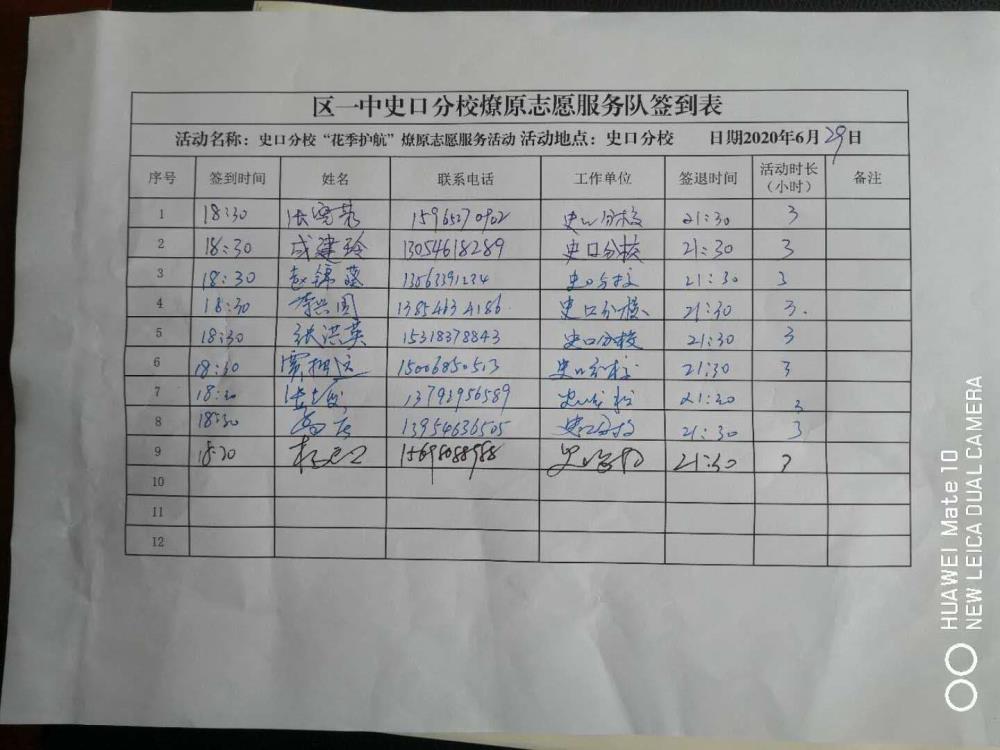 区一中史口分校燎原志愿服务队签到表
活动名称：史口分校“花季护航”燎原志愿服务活动 活动地点：史口分校 日期2020年6月29日
序号 签到时间 姓名 联系电话 工作单位 签退时间 活动时长（小时） 备注
1 18:30 15965270902 史口分校 21:30 3
2 18:30 成建玲 13054618289 史口分校 21:30 3
3 18:30 赵锦蓉 13563391234 史口分校 21:30 3
4 18:30 李兴国 13854634186 史口分校 21:30 3.
5 18:30 张洪英 15318378843 史口分校 21:30 3
6 18:30 15006850513 史口分校 21:30 3
7 18:30 13793956589 史口分校 21:30 3
8 18:30 13954636505 史口分校 21:30 3
9 18:30 15698088988 史口分校 21:30 3
10
11
12
HUAWEI Mate 10
NEW LEICA DUAL CAMERA